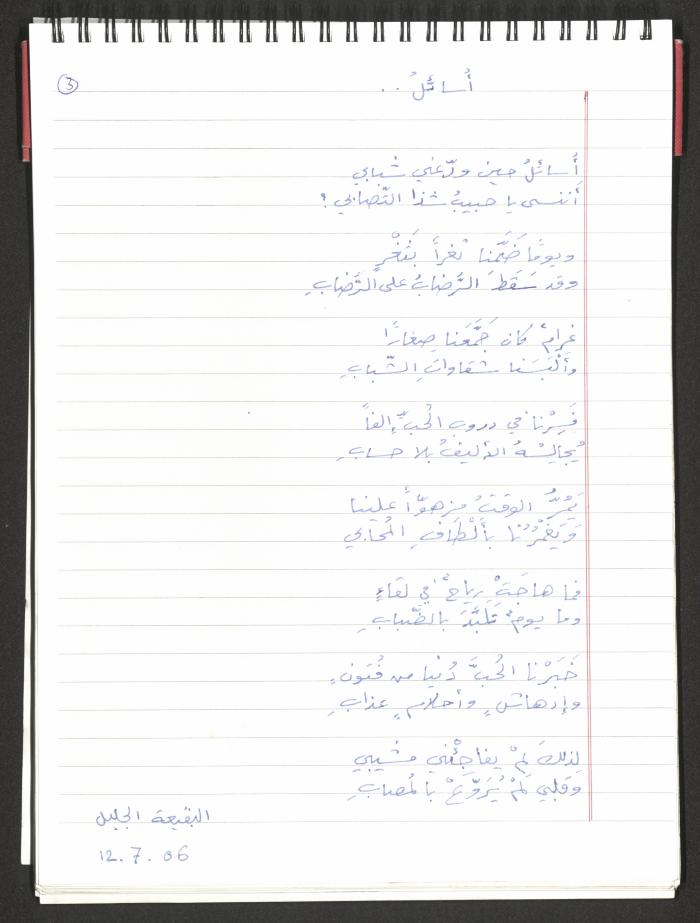 ③
أُسائلُ ..
أُسائلُ حينَ ودّعني شبابي
أَننسى يا حبيبُ شذا التّصابي ؟
ويومًا ضَمَّنا ثغراً بثَغْرٍ
وقد سَقَطَ الرُّضابُ على الرُّضابِ
غرامٌ كان جَمَّعَنا صغارًا
وأَلْبَسَنا شقاواتِ الشّبابِ
فَسِرْنا في دروبِ الحُبِّ إلفاً
يُجالِسُهُ الأليفُ بلا حسابِ
يَمُرُّ الوقتُ مزهوّاً علينا
وَيَغمُرُنا بأَلْطافِ المُحابي
فما هاجَتْ رياحٌ في لقاءٍ
وما يومٌ تَلَبَّدَ بالضّبابِ
خَبَرْنا الحُبَّ دُنيا من فُتونٍ
وإدهاشٍ وأحلامٍ عذابِ
لذلكَ لمْ يفاجِئْني مشيبي
وَقلبي لَمْ يُرَوَّعْ بالمُصابِ
البقيعة الجليل
12.7.06